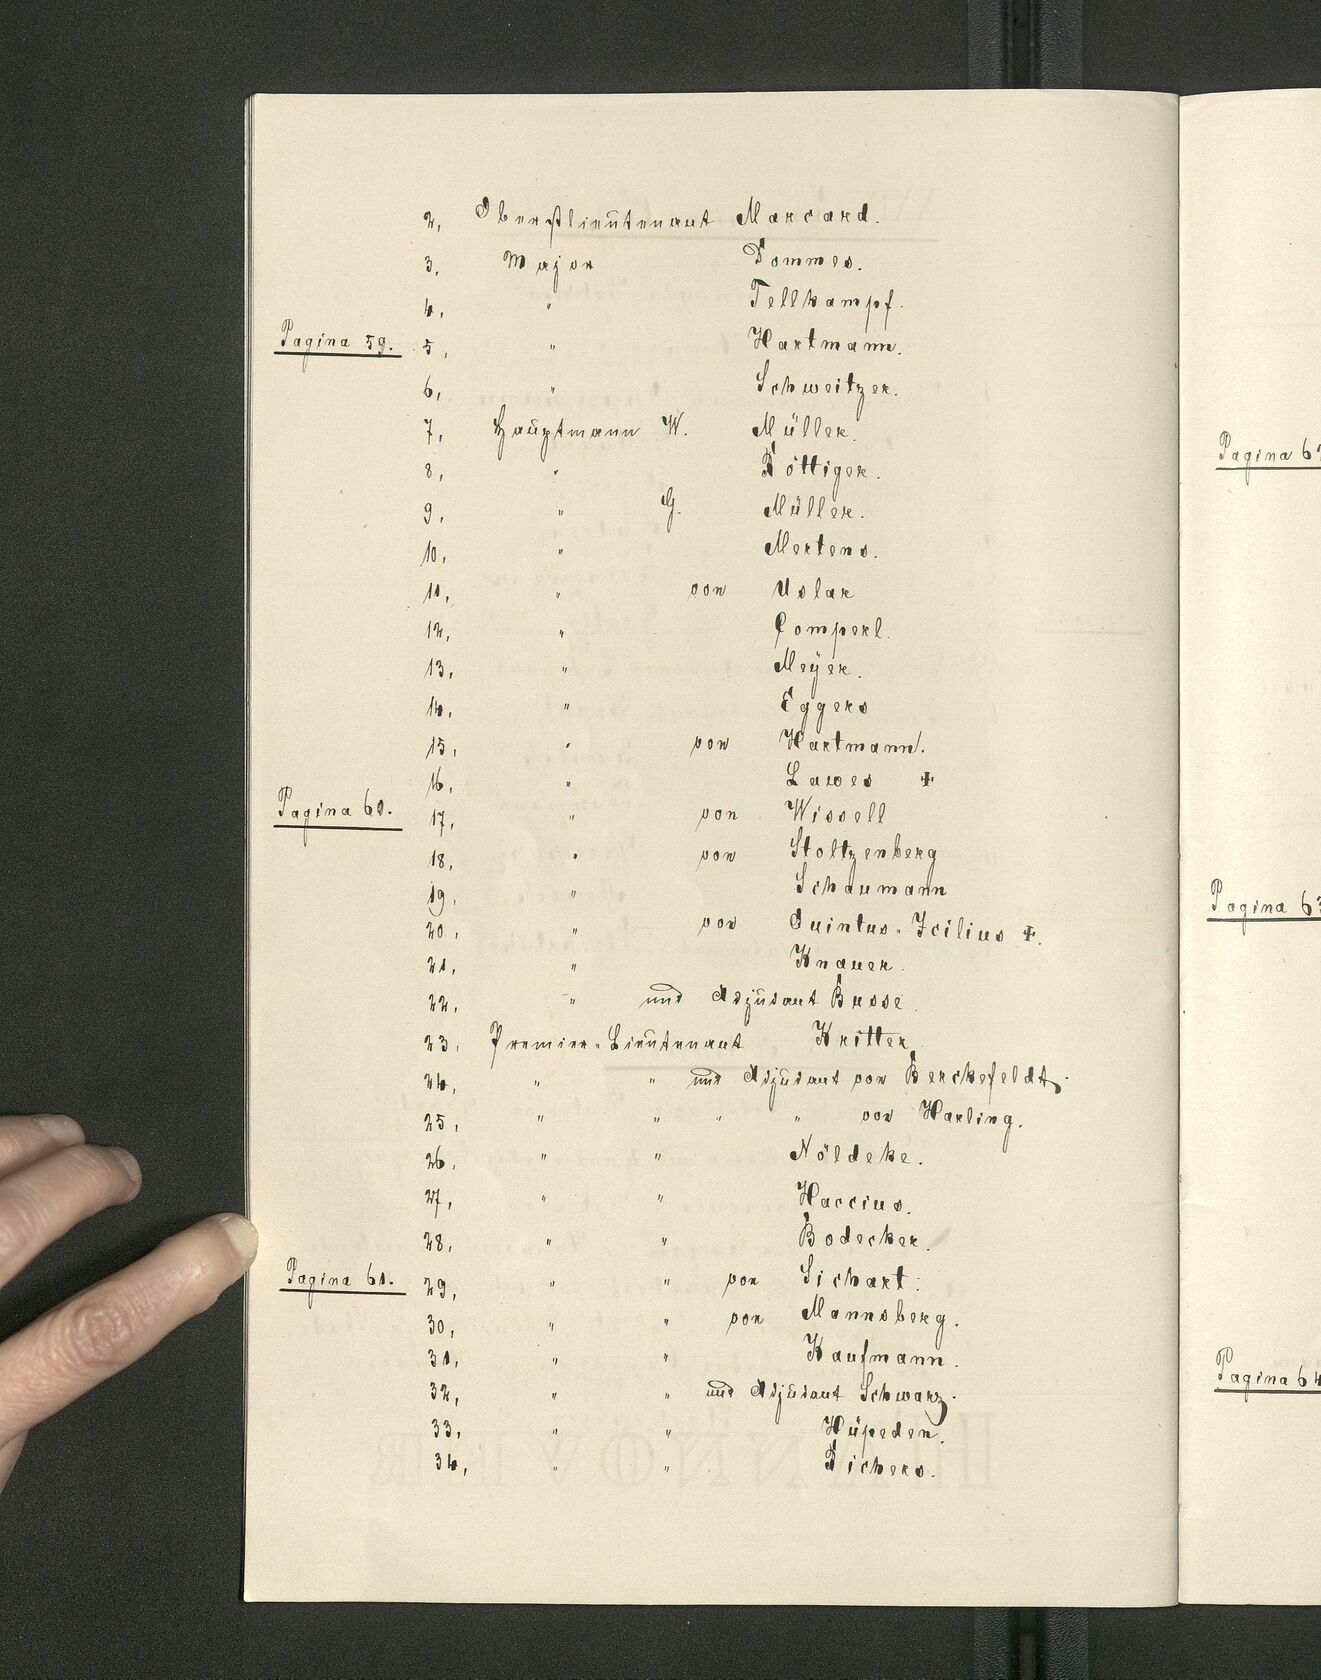 2, Oberstlieutenant Marcard.
3, Major Dommes.
4, " Tellkampf.
Pagina 59. 5, " Hartmann.
6, " Schweitzer.
7, Hauptmann W. Müller.
8, " Röttiger.
9, " G. Müller.
10, " Mertens.
11, " von Uslar
12, " Comperl.
13, " Meÿer.
14, " Eggers
15, " von Hartmann.
16, " Lawes ‡
Pagina 60. 17, " von Wissell
18, " von Stoltzenberg
19, " Schaumann
20, " von Quintus-Icilius ‡.
21, " Knauer.
22, " und Adjutant Busse.
23, Premier-Lieutenant Kritter.
24, " " und Adjutant von Berckefeldt.
25, " " " " von Harling.
26, " " Nöldeke.
27, " " Haccius.
28, " " Bodecker.
Pagina 61. 29, " " von Sichart.
30, " " von Mannsberg.
31, " " Kaufmann.
32, " " und Adjutant Schwarz.
33, " " Hüpeden.
34, " " Richers.
Pagina 6
Pagina 63
Pagina 64